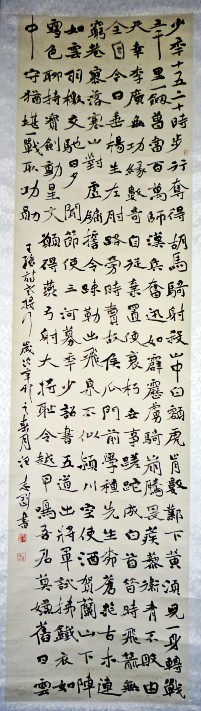 少年十五二十時步行奪得胡馬騎射殺山中白額虎肯數鄴下黃須兒一身轉戰
三千里一劍曾當百萬師漢兵奮迅如霹靂虜騎崩騰畏蒺藜衛青不敗由
天幸李廣無功緣數奇自從棄置便衰朽世事蹉跎成白首昔時飛箭無
全目今日垂楊生左肘路旁時賣故侯瓜門前學種先生柳蒼茫古木連
窮巷寥落寒山對虛牖誓令疏勒出飛泉不似潁川空使酒賀蘭山下陣
如雲羽檄交馳日夕聞節使三河募年少詔書五道出將軍試拂鐵衣如
雪色聊持寶劍動星文願得燕弓射大將恥令越甲鳴吾君莫嫌舊日雲
中守猶堪一戰取功勛
王維詩老將行 歲次辛卯之春月 書